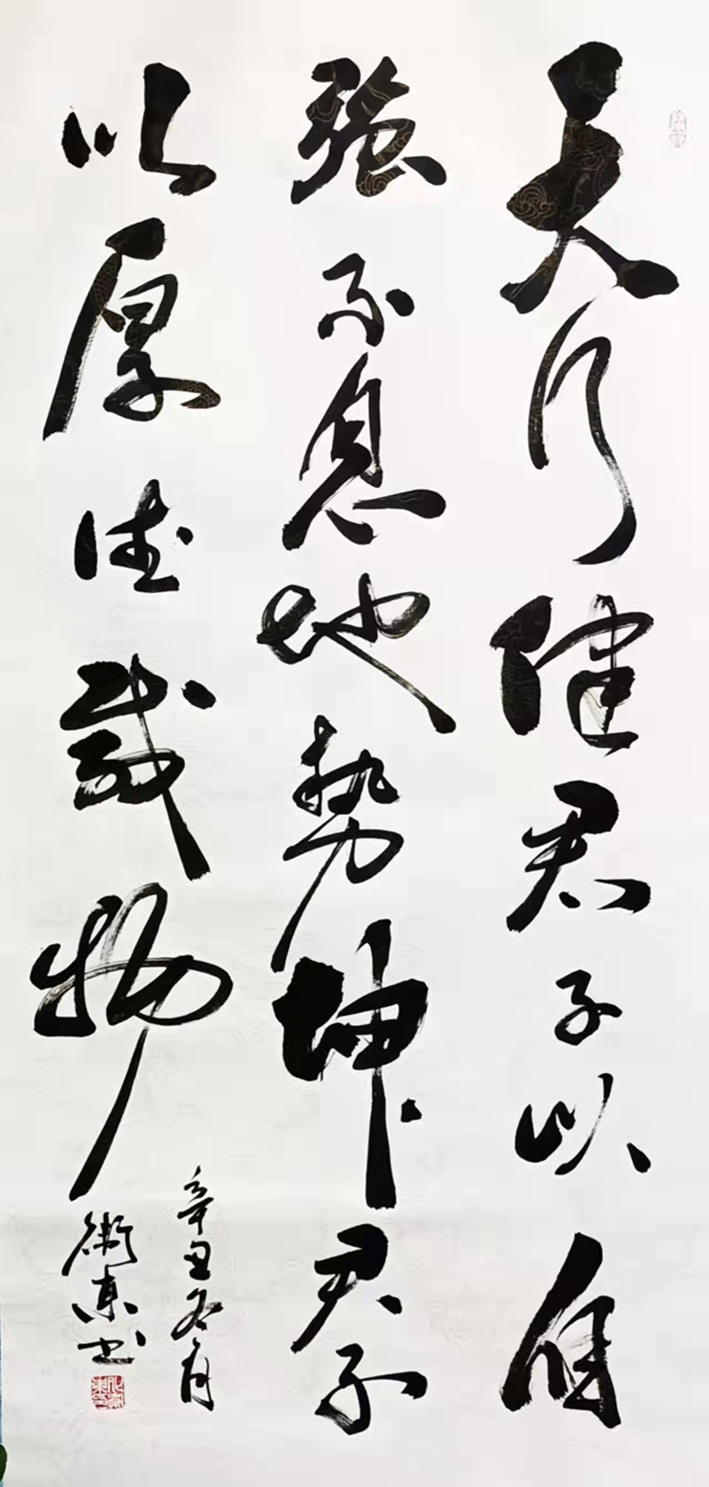 天行健君子以自
强不息地势坤君子
以厚德载物
辛丑冬月
衛東书